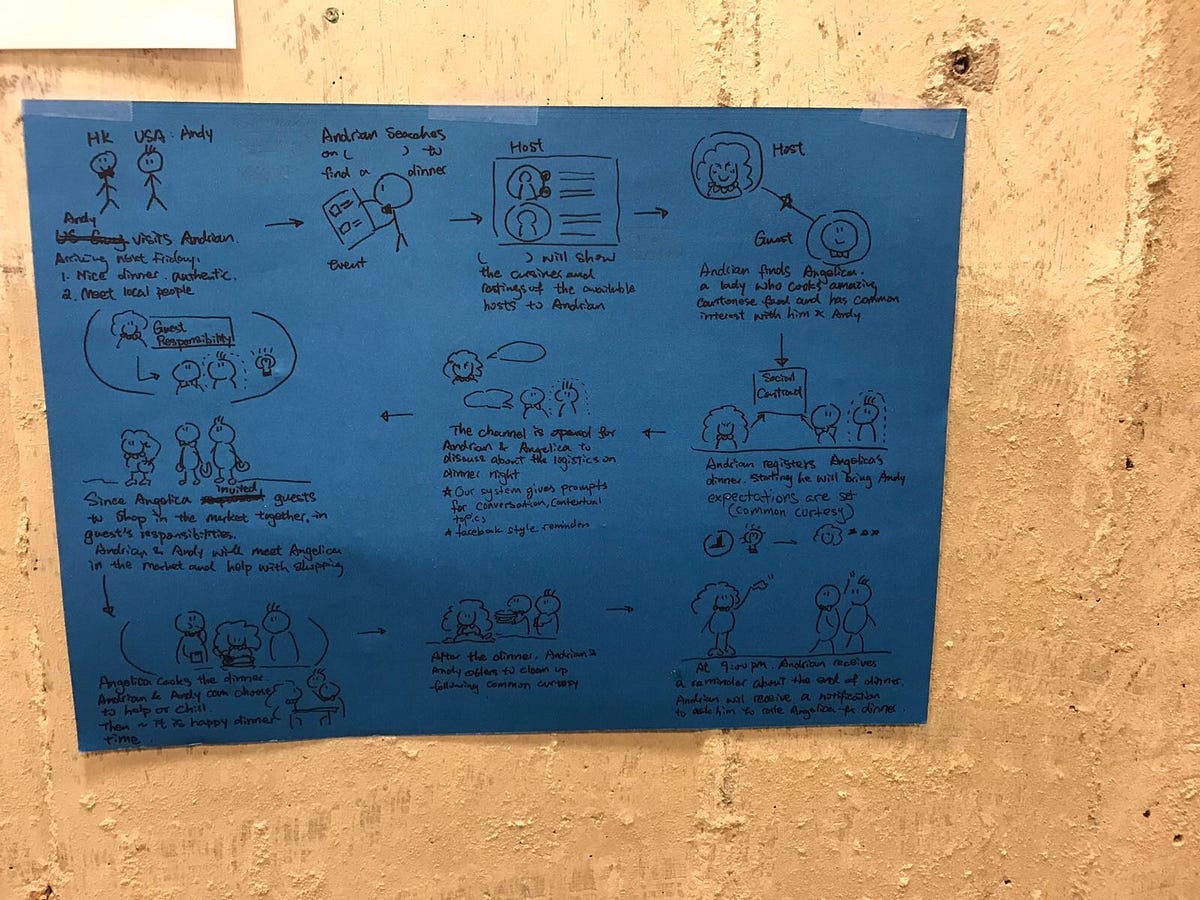 HK USA: Andy
Andy
visits Andrian.
Arriving next Friday.
1. Nice dinner. authentic.
2. Meet local people
Andrian Searches
on ( ) to
find a dinner
event
Host
( ) will show
the cuisines and
ratings of the available
hosts to Andrian
Host
Guest
Andrian finds Angelica.
a lady who cooks amazing
Cantonese food and has common
interest with him & Andy
Social
Contract
Andrian registers Angelica's
dinner. Stating he will bring Andy
expectations are set
(common curtesy)
The channel is opened for
Andrian & Angelica to
discuss about the logistics on
dinner night
★ Our system gives prompts
for conversation, contextual
topics
★ facebook style reminders
Guest
Responsibility
Since Angelica invited guests
to shop in the market together, in
guest's responsibilities.
Andrian & Andy will meet Angelica
in the market and help with shopping
Angelica cooks the dinner.
Andrian & Andy can choose
to help or chill.
Then ~ it is happy dinner
time.
After the dinner. Andrian &
Andy offers to clean up
following common curtesy
At 9:00 pm. Andrian receives
a reminder about the end of dinner.
Andrian will receive a notification
to ask him to rate Angelica for dinner.